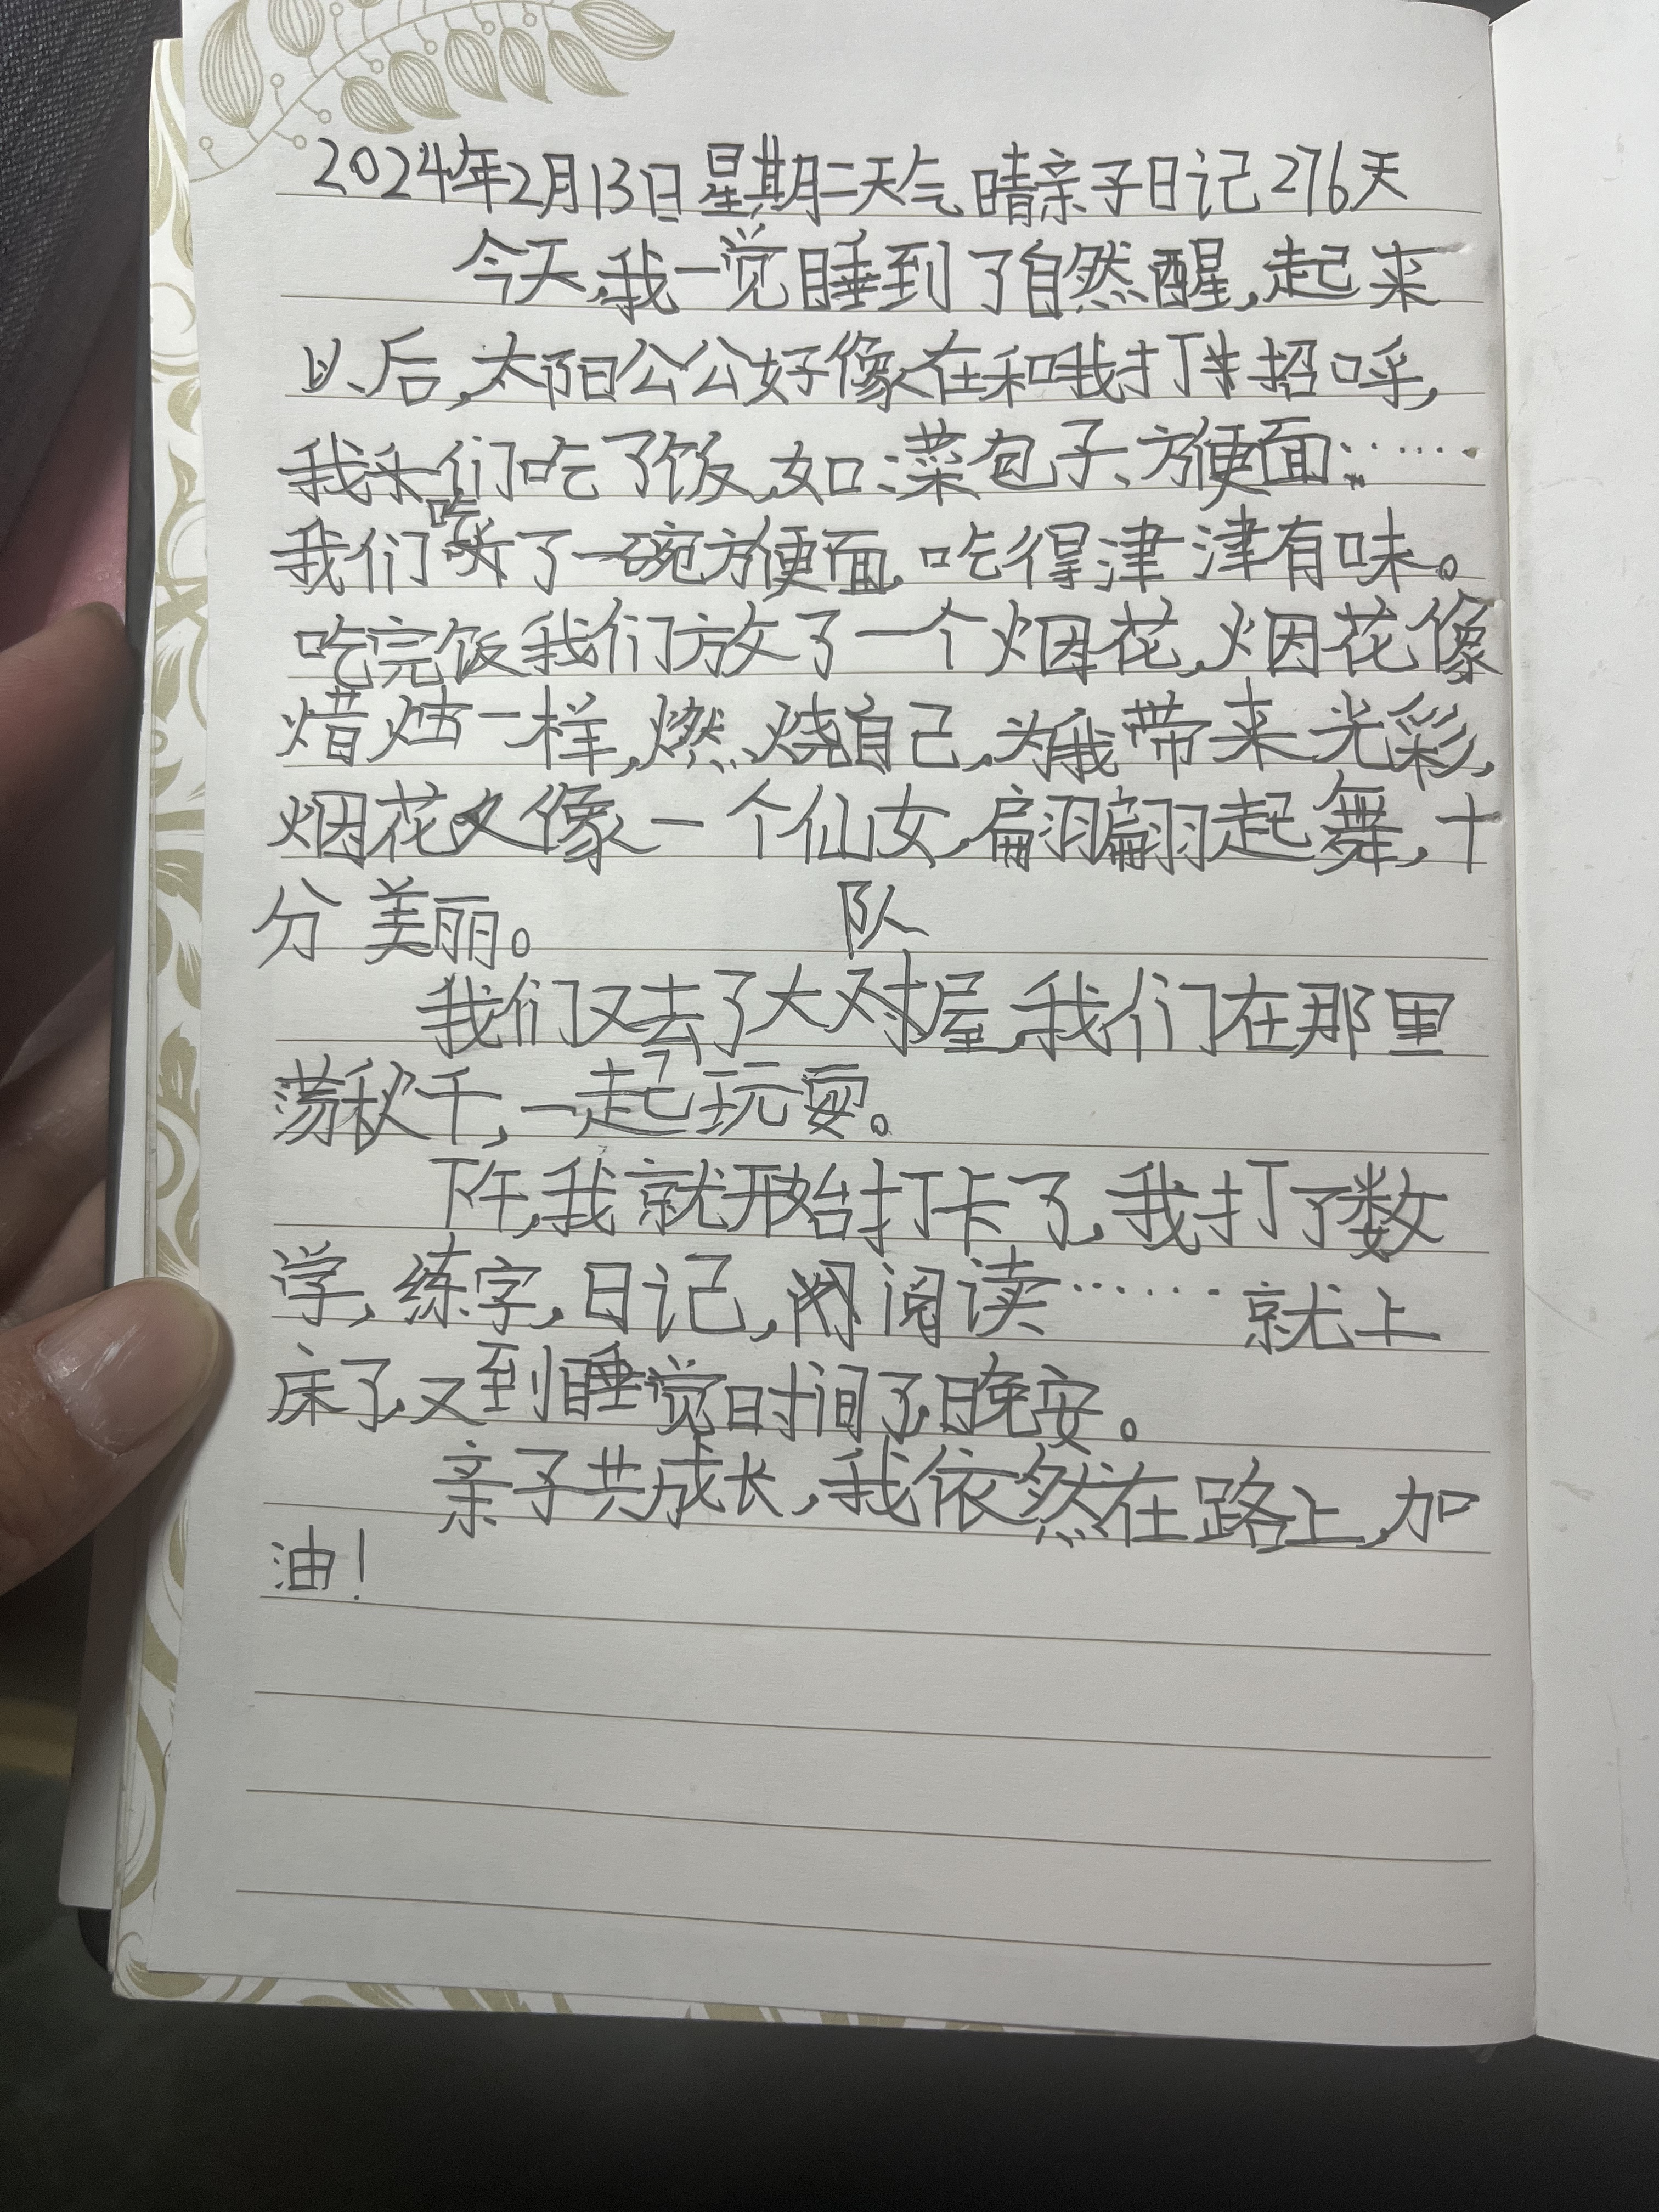 2024年2月13日星期二天气晴亲子日记276天
今天,我一觉睡到了自然醒,起来
以后,太阳公公好像在和我打招呼,
我们吃了饭,如:菜包子、方便面……
吃
我们了一碗方便面,吃得津津有味。
吃完饭我们放了一个烟花,烟花像
烛一样,燃烧自己,为我带来光彩,
烟花又像一个仙女,翩翩起舞,十
分美丽。
队
我们又去了大对屋,我们在那里
荡秋千,一起玩耍。
下午,我就开始打卡了,我打了数
学,练字,日记,阅读……就上
床了,又到睡觉时间了,晚安。
亲子共成长,我依然在路上,加
油!